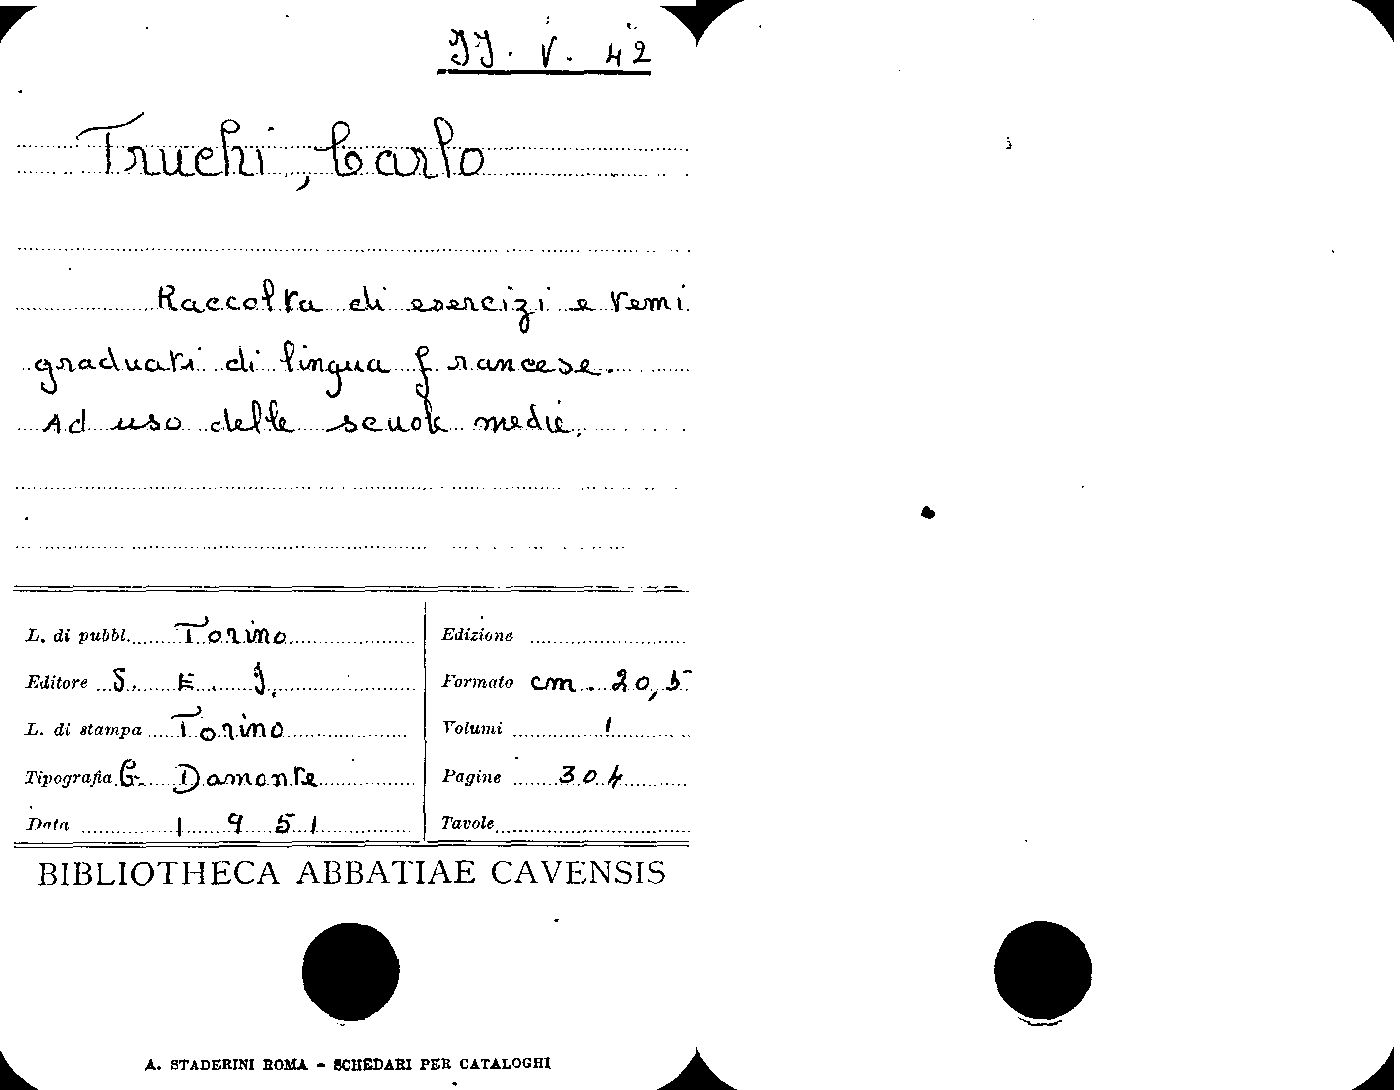 JJ. V. 42
Truchi, Carlo
Raccolta di esercizi e temi
graduati di lingua francese.
Ad uso delle scuole medie.
L. di pubbl. Torino
Editore S. E. J.
L. di stampa Torino
Tipografia G. Damonte
Data 1951
Edizione
Formato cm. 20,5
Volumi 1
Pagine 304
Tavole
BIBLIOTHECA ABBATIAE CAVENSIS
A. STADERINI ROMA - SCHEDARI PER CATALOGHI